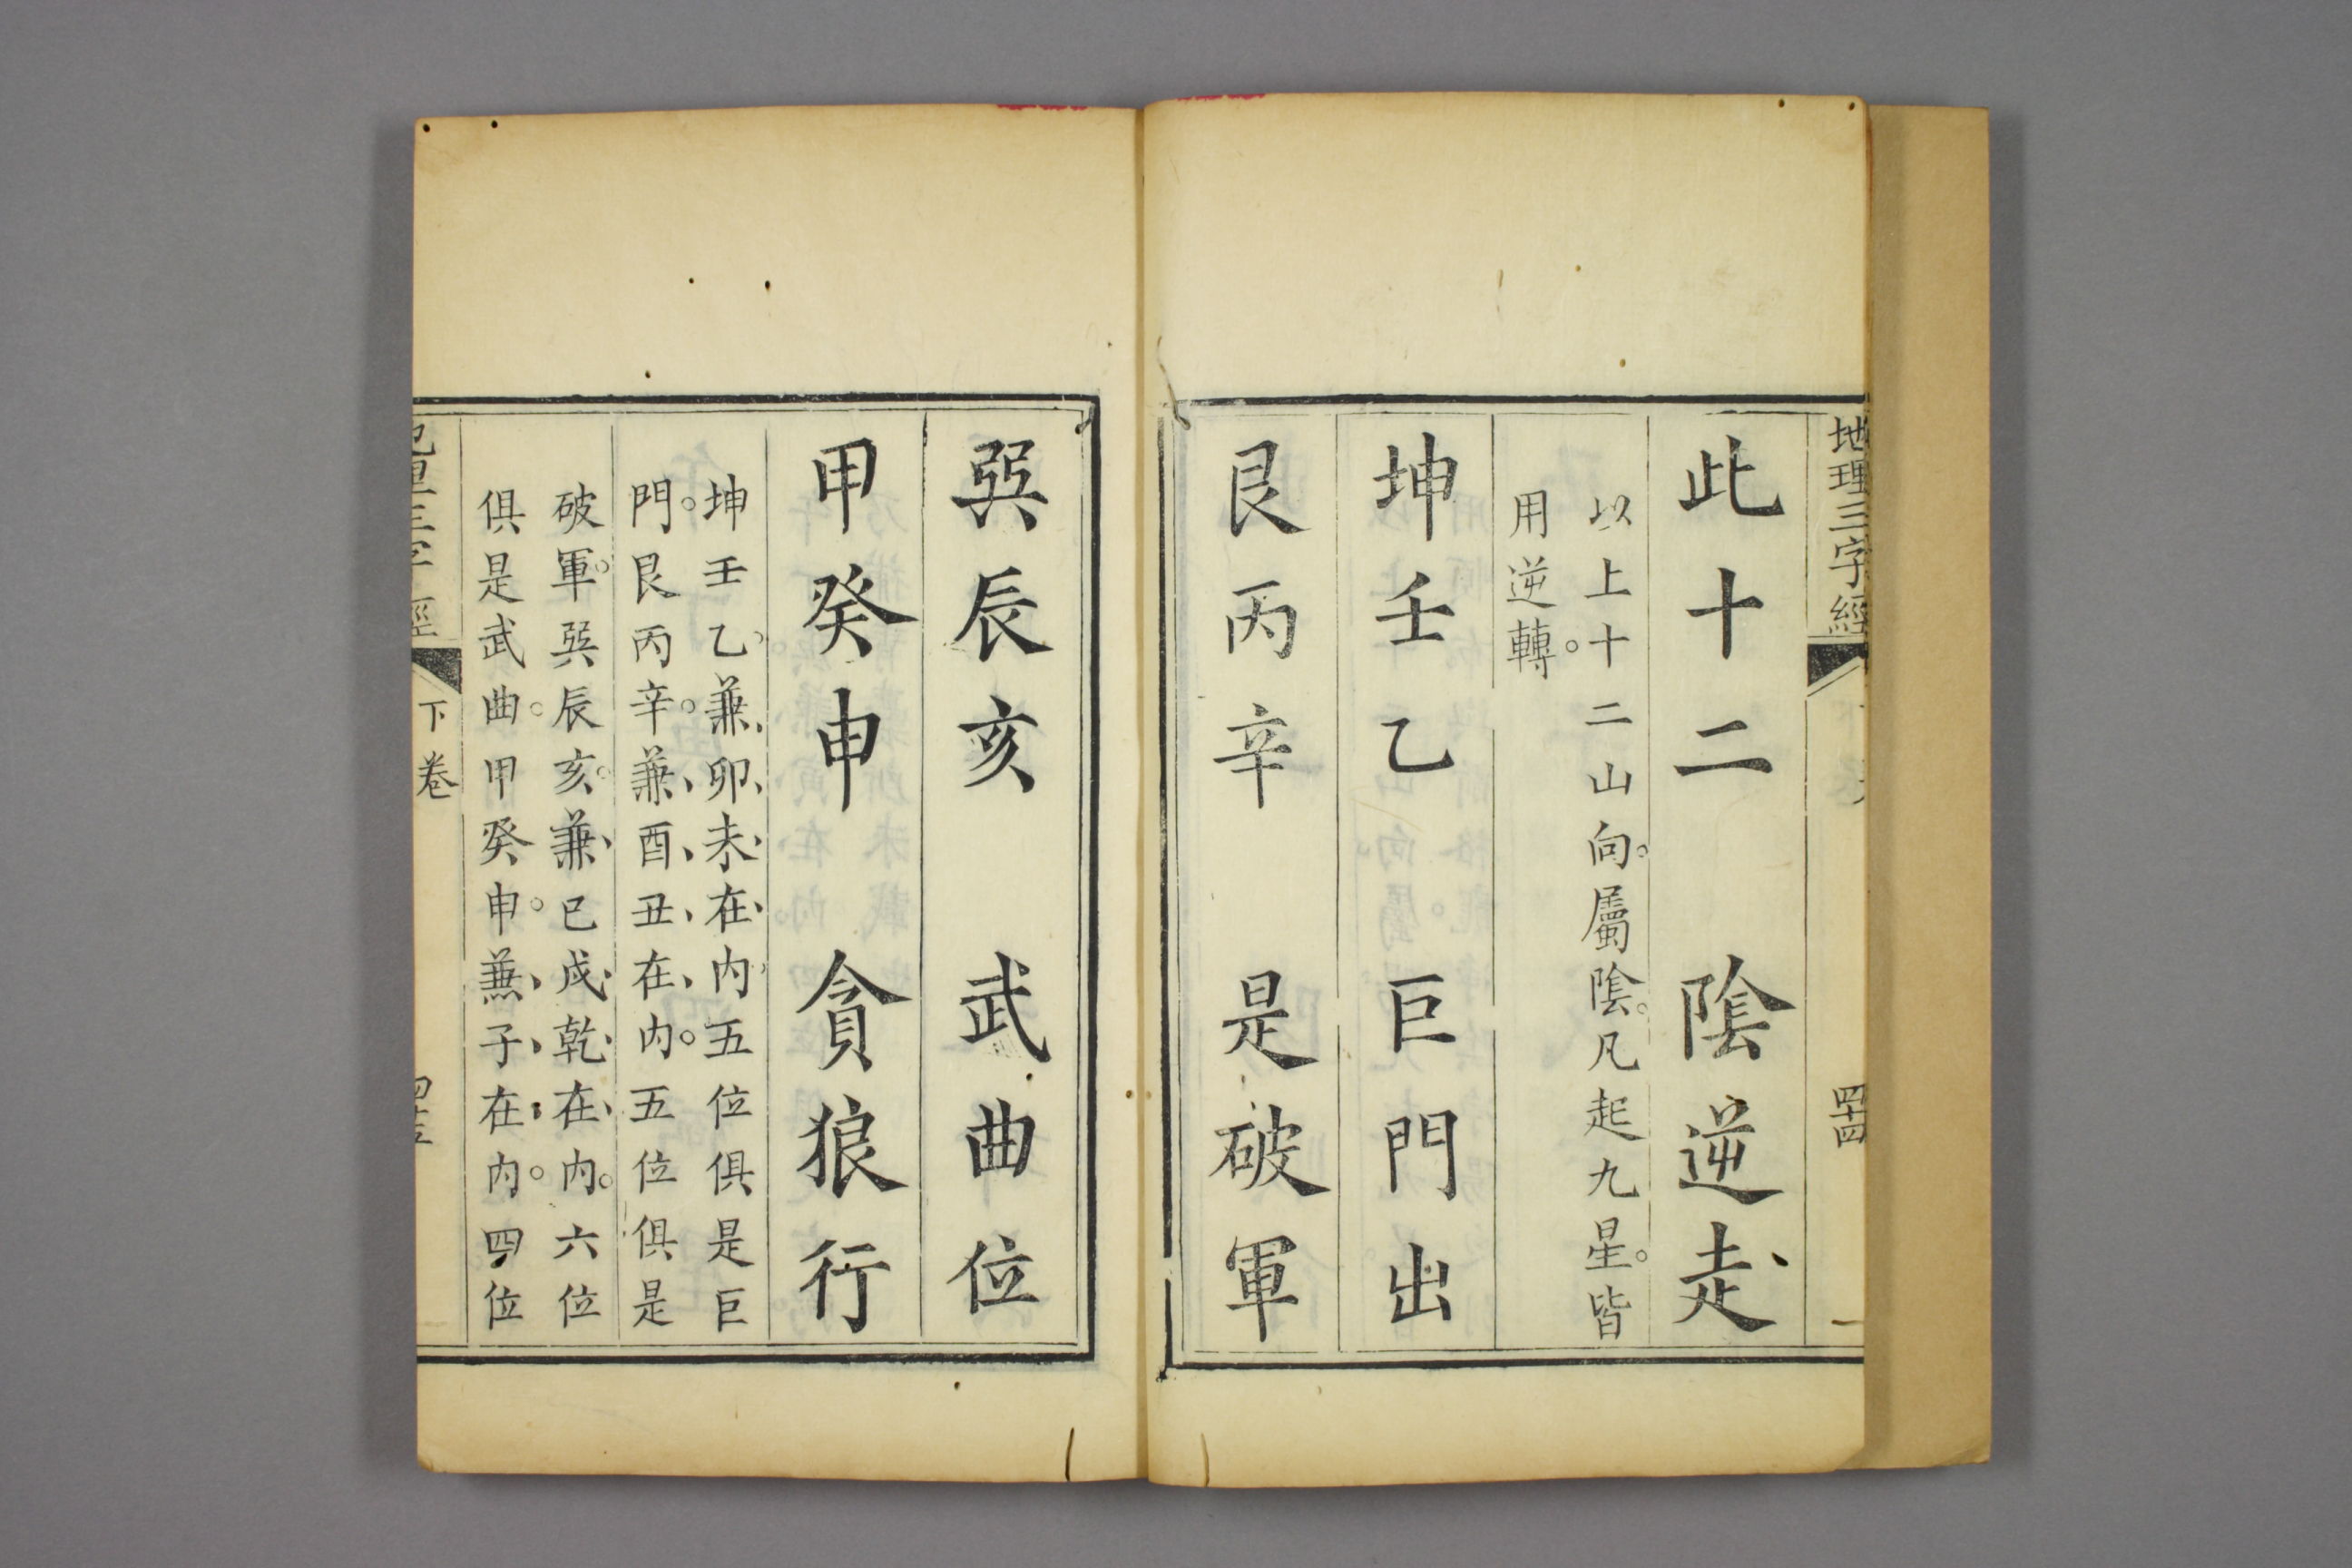 地理三字經
四十四
此十二 陰逆走
以上十二山向。屬陰。凡起九星。皆
用逆轉。
坤壬乙 巨門出
艮丙辛 是破軍
巽辰亥 武曲位
甲癸申 貪狼行
坤壬乙、兼、卯、未、在、内、五位俱是巨
門。艮丙辛。兼、酉、丑、在、内。五位俱是
破軍。巽辰亥。兼、巳戌、乾、在、内。六位
俱是武曲。甲癸申。兼、子、在、内。四位
地理三字經
下卷
四十五